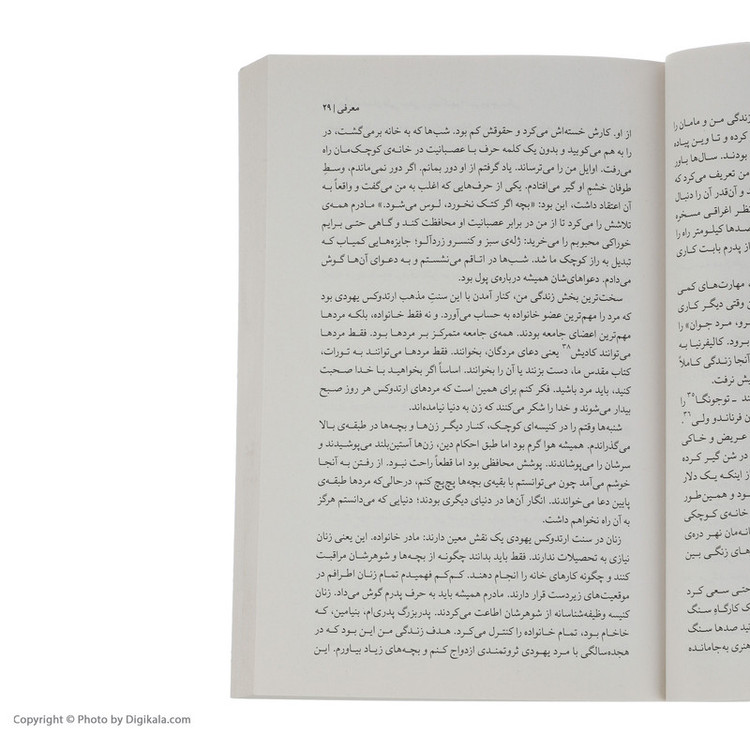 معرفی | ۲۹
از او. کارش خسته‌اش می‌کرد و حقوقش کم بود. شب‌ها که به خانه برمی‌گشت، در
را به هم می‌کوبید و بدون یک کلمه حرف با عصبانیت در خانه‌ی کوچک‌مان راه
می‌رفت. اوایل من را می‌ترساند. یاد گرفتم از او دور بمانم. اگر دور نمی‌ماندم، وسطِ
طوفان خشم او گیر می‌افتادم. یکی از حرف‌هایی که اغلب به من می‌گفت و واقعاً به
آن اعتقاد داشت، این بود: «بچه اگر کتک نخورد، لوس می‌شود.» مادرم همه‌ی
تلاشش را می‌کرد تا از من در برابر عصبانیت او محافظت کند و گاهی حتی برایم
خوراکی محبوبم را می‌خرید: ژله‌ی سبز و کنسرو زردآلو؛ جایزه‌هایی کمیاب که
تبدیل به راز کوچک ما شد. شب‌ها در اتاقم می‌نشستم و به دعوای آن‌ها گوش
می‌دادم. دعواهای‌شان همیشه درباره‌ی پول بود.
سخت‌ترین بخش زندگی من، کنار آمدن با این سنتِ مذهب ارتدوکس یهودی بود
که مرد را مهم‌ترین عضو خانواده به حساب می‌آورد. و نه فقط خانواده، بلکه مردها
مهم‌ترین اعضای جامعه بودند. همه‌ی جامعه متمرکز بر مردها بود. فقط مردها
می‌توانند کادیش۳۸ یعنی دعای مردگان، بخوانند. فقط مردها می‌توانند به تورات،
کتاب مقدس ما، دست بزنند یا آن را بخوانند. اساساً اگر بخواهید با خدا صحبت
کنید، باید مرد باشید. فکر کنم برای همین است که مردهای ارتدوکس هر روز صبح
بیدار می‌شوند و خدا را شکر می‌کنند که زن به دنیا نیامده‌اند.
شنبه‌ها وقتم را در کنیسه‌ای کوچک، کنار دیگر زن‌ها و بچه‌ها در طبقه‌ی بالا
می‌گذراندم. همیشه هوا گرم بود اما طبق احکام دین، زن‌ها آستین‌بلند می‌پوشیدند و
سرشان را می‌پوشاندند. پوشش محافظی بود اما قطعاً راحت نبود. از رفتن به آنجا
خوشم می‌آمد چون می‌توانستم با بقیه‌ی بچه‌ها پچ‌پچ کنم، درحالی‌که مردها طبقه‌ی
پایین دعا می‌خواندند. انگار آن‌ها در دنیای دیگری بودند؛ دنیایی که می‌دانستم هرگز
به آن راه نخواهم داشت.
زنان در سنت ارتدوکس یهودی یک نقش معین دارند: مادر خانواده. این یعنی زنان
نیازی به تحصیلات ندارند. فقط باید بدانند چگونه از بچه‌ها و شوهرشان مراقبت
کنند و چگونه کارهای خانه را انجام دهند. کم‌کم فهمیدم تمام زنان اطرافم در
موقعیت‌های زیردست قرار دارند. مادرم همیشه باید به حرف پدرم گوش می‌داد. زنان
کنیسه وظیفه‌شناسانه از شوهرشان اطاعت می‌کردند. پدربزرگ پدری‌ام، بنیامین، که
خاخام بود، تمام خانواده را کنترل می‌کرد. هدف زندگی من این بود که در
هجده‌سالگی با مرد یهودی ثروتمندی ازدواج کنم و بچه‌های زیاد بیاورم. این
زندگی من و مامان را
کرده و تا وین پیاده
بودند. سال‌ها باور
من تعریف می‌کرد که
و آن‌قدر آن را دنبال
نظر اغراقی مسخره
صدها کیلومتر راه را
از پدرم بابت کاری
مهارت‌های کمی
وقتی دیگر کاری
برو، مرد جوان» را
برود. کالیفرنیا به
آنجا زندگی کاملاً
پیش نرفت.
ـ توجونگا۳۵ را
فرناندو ولی۳۶.
عریض و خاکی
در شن گیر کرده
از اینکه یک دلار
بود و همین‌طور
خانه‌ی کوچکی
خانه‌مان نهر دره‌ی
های زنگی بین
حتی سعی کرد
یک کارگاه سنگ
صدها سنگ
هنری به‌جامانده
Copyright © Photo by Digikala.com